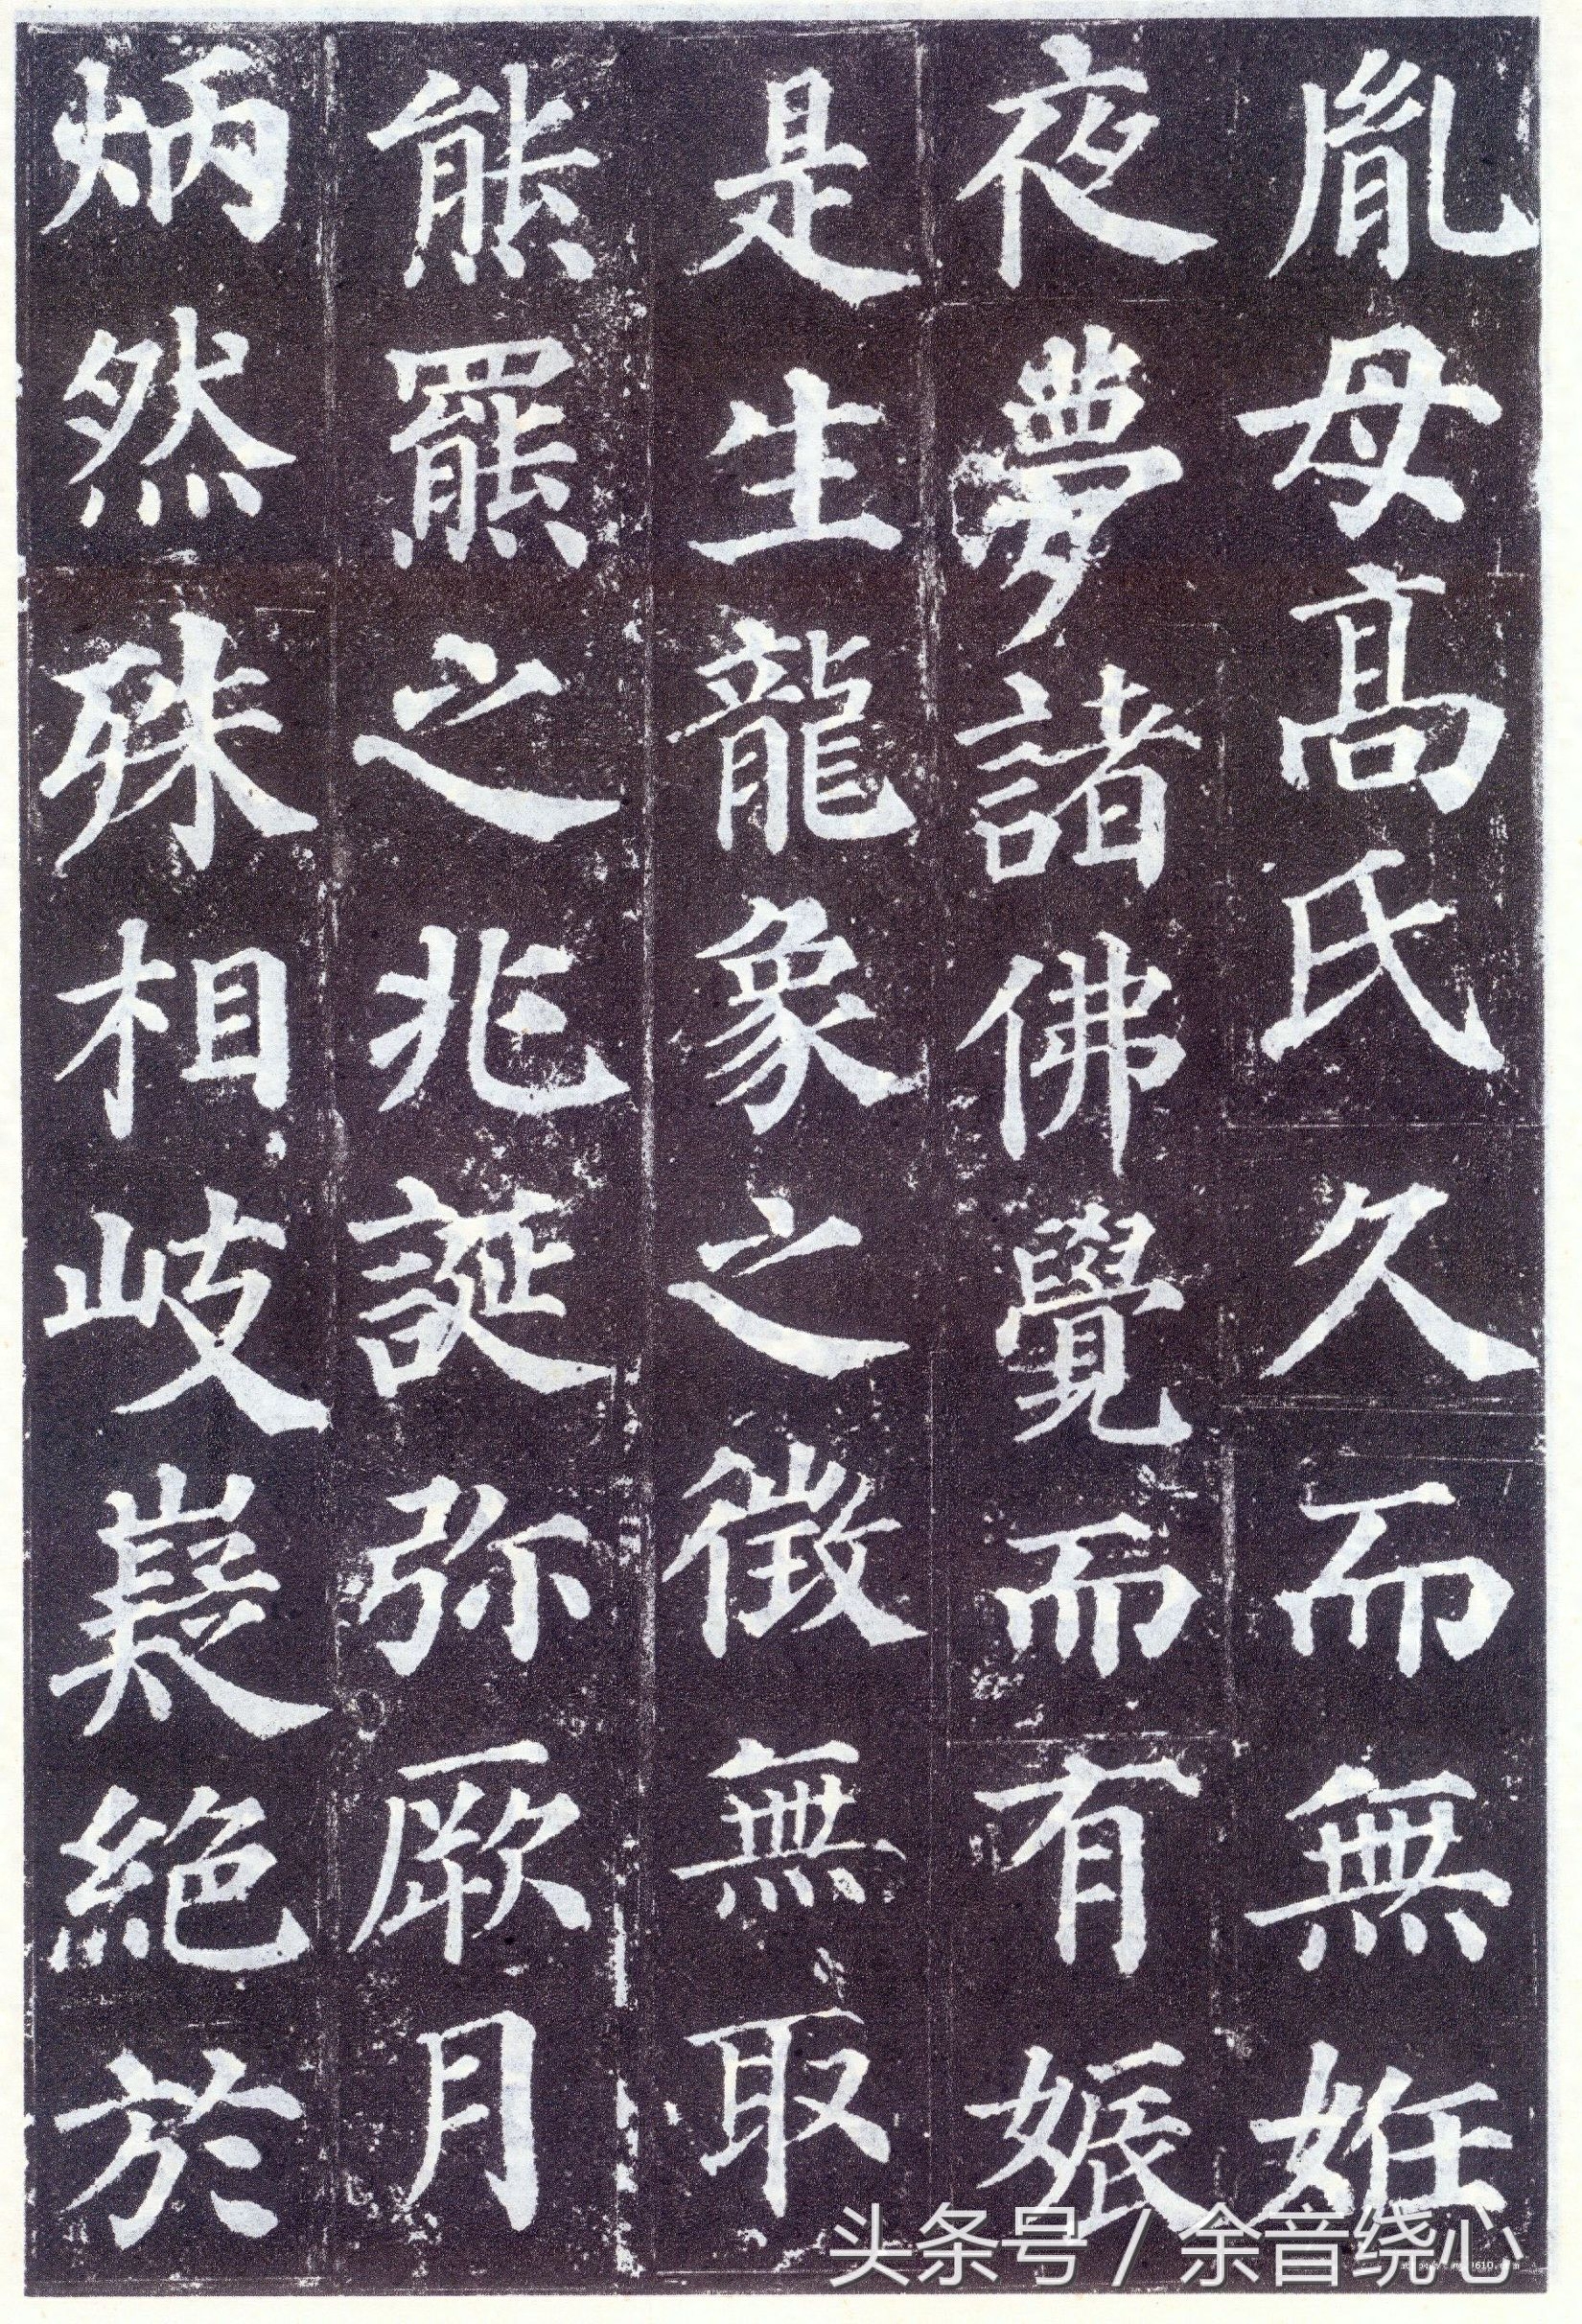 胤母高氏久而無妊
夜夢諸佛覺而有娠
是生龍象之徵無取
熊羆之兆誕弥厥月
炳然殊相岐嶷絕於
头条号 / 余音绕心